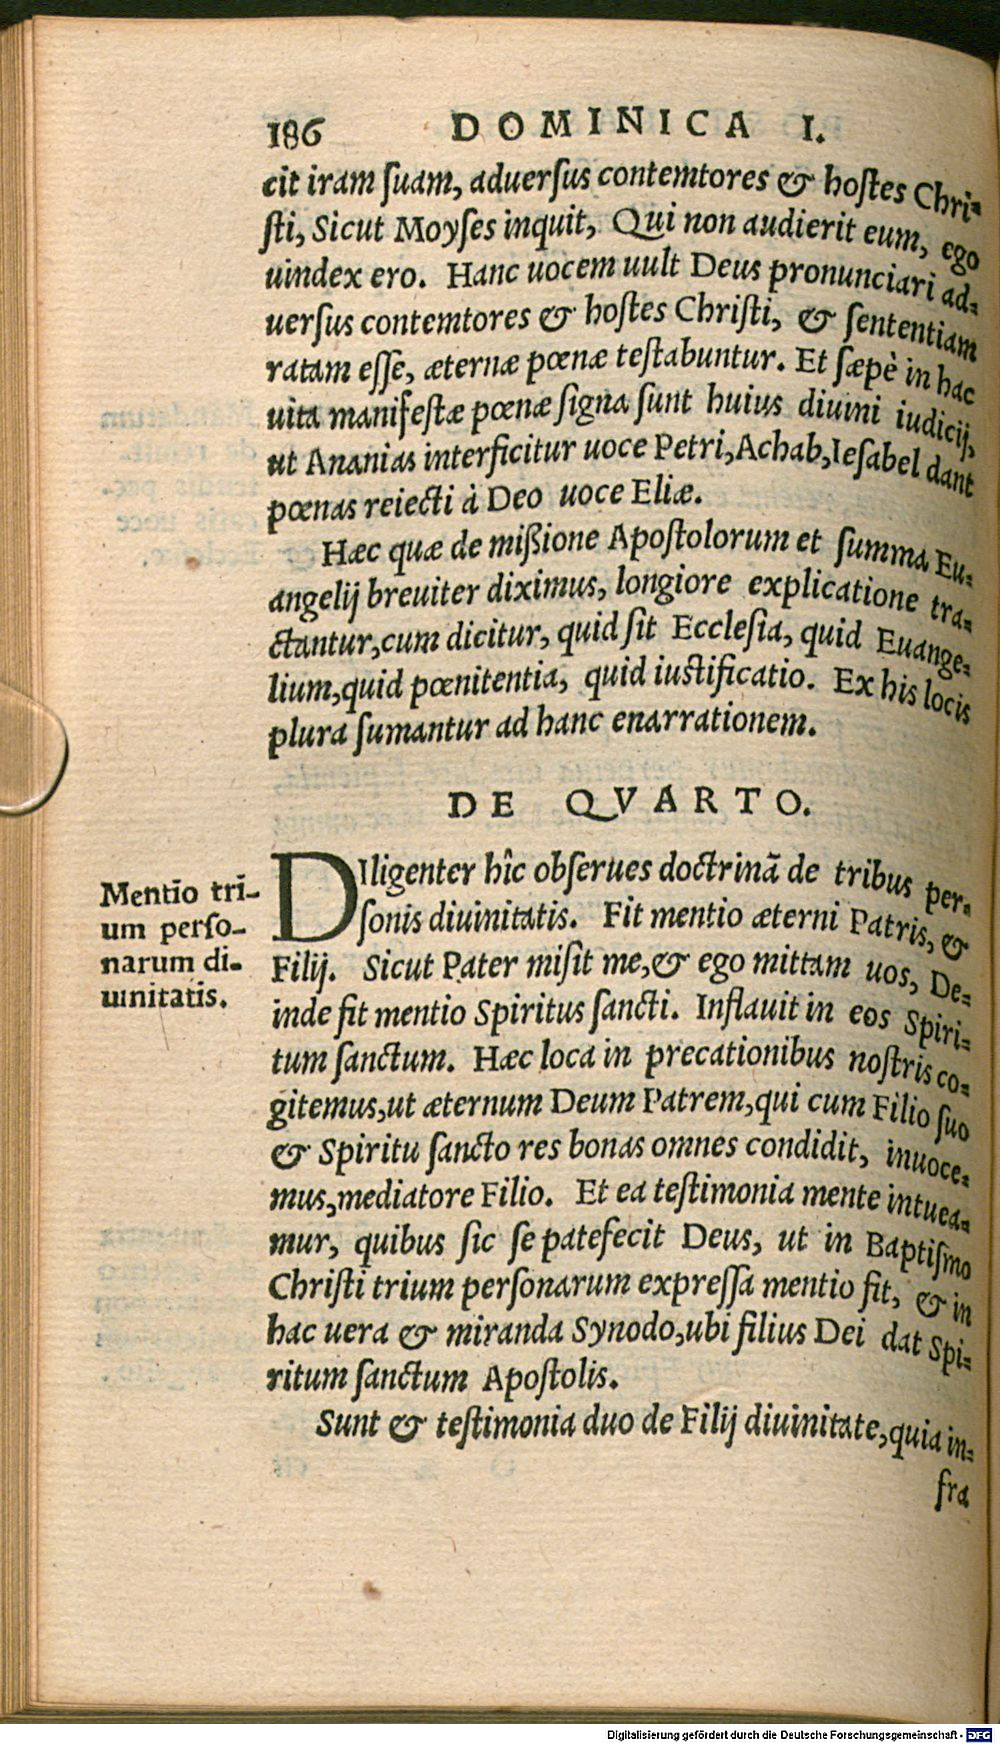 186 DOMINICA I.
cit iram ſuam, aduerſus contemtores & hoſtes Chri-
ſti, Sicut Moyſes inquit, Qui non audierit eum, ego
uindex ero. Hanc uocem uult Deus pronunciari ad-
uerſus contemtores & hoſtes Chriſti, & ſententiam
ratam eſſe, æternæ pœnæ teſtabuntur. Et ſæpè in hac
uita manifeſtæ pœnæ ſigna ſunt huius diuini iudicij,
ut Ananias interficitur uoce Petri, Achab, Ieſabel dant
pœnas reiecti à Deo uoce Eliæ.
Hæc quæ de mißione Apoſtolorum et ſumma Eu-
angelij breuiter diximus, longiore explicatione tra-
ctantur, cum dicitur, quid ſit Eccleſia, quid Euange-
lium, quid pœnitentia, quid iuſtificatio. Ex his locis
plura ſumantur ad hanc enarrationem.
DE QVARTO.
Mentiō tri-
um perſo-
narum di-
uinitatis.
DIligenter hîc obſerues doctrinā de tribus per-
ſonis diuinitatis. Fit mentio æterni Patris, &
Filij. Sicut Pater miſit me, & ego mittam uos, De-
inde fit mentio Spiritus ſancti. Inflauit in eos Spiri-
tum ſanctum. Hæc loca in precationibus noſtris co-
gitemus, ut æternum Deum Patrem, qui cum Filio ſuo
& Spiritu ſancto res bonas omnes condidit, inuoce-
mus, mediatore Filio. Et ea teſtimonia mente intuea-
mur, quibus ſic ſe patefecit Deus, ut in Baptiſmo
Chriſti trium perſonarum expreſſa mentio fit, & in
hac uera & miranda Synodo, ubi filius Dei dat Spi-
ritum ſanctum Apoſtolis.
Sunt & teſtimonia duo de Filij diuinitate, quia in-
fra
Digitalisierung gefördert durch die Deutsche Forschungsgemeinschaft - DFG